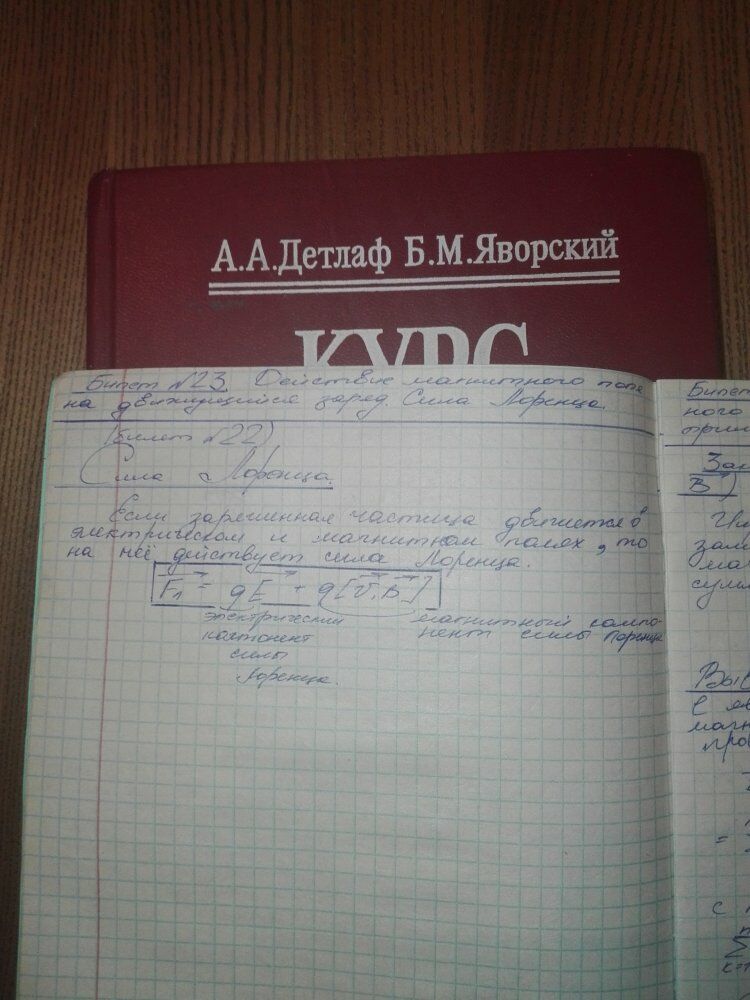 А.А.Детлаф Б.М.Яворский
КУРС
Билет №23. Действие магнитного поля
на движущийся заряд. Сила Лоренца.
(билет №22)
Сила Лоренца.
Если заряженная частица движется в
электрическом и магнитном полях, то
на неё действует сила Лоренца.
F⃗л = qE⃗ + q[v⃗,B⃗]
электрический
компонент
силы
Лоренца.
магнитный компо-
нент силы Лоренца
Билет
ного
Зак
B⃗)
сумм
Выв
с
=
с
Σ